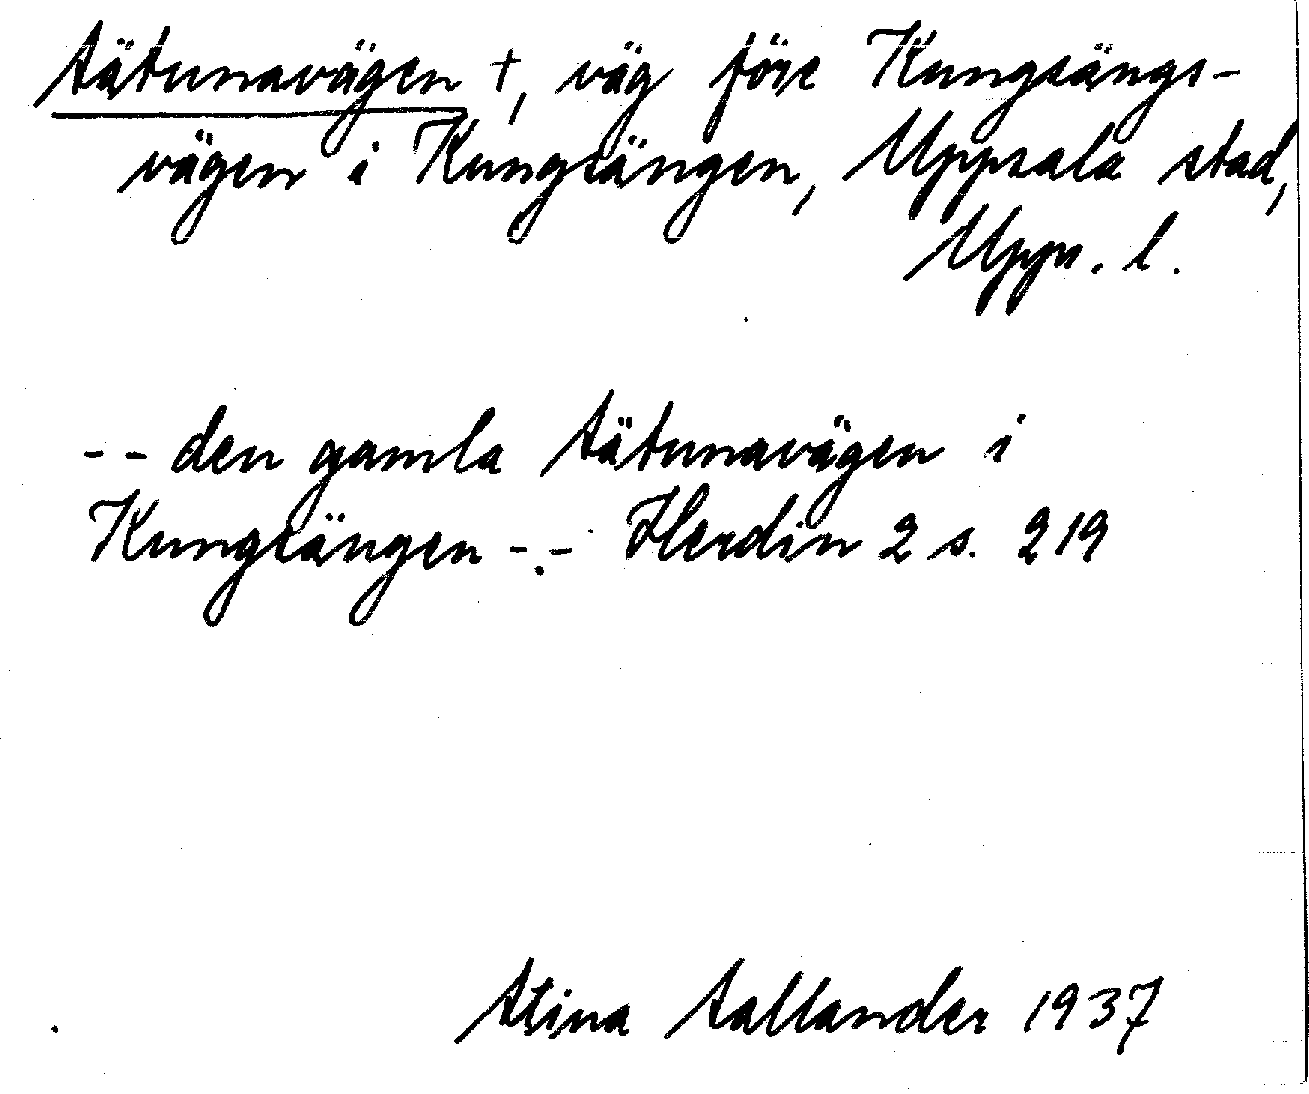 Sätunavägen †, väg före Kungsängs-
vägen i Kungsängen, Uppsala stad,
Upps. l.
-- den gamla Sätunavägen i
Kungsängen -- Herdin 2 s. 219
Stina Sallander 1937